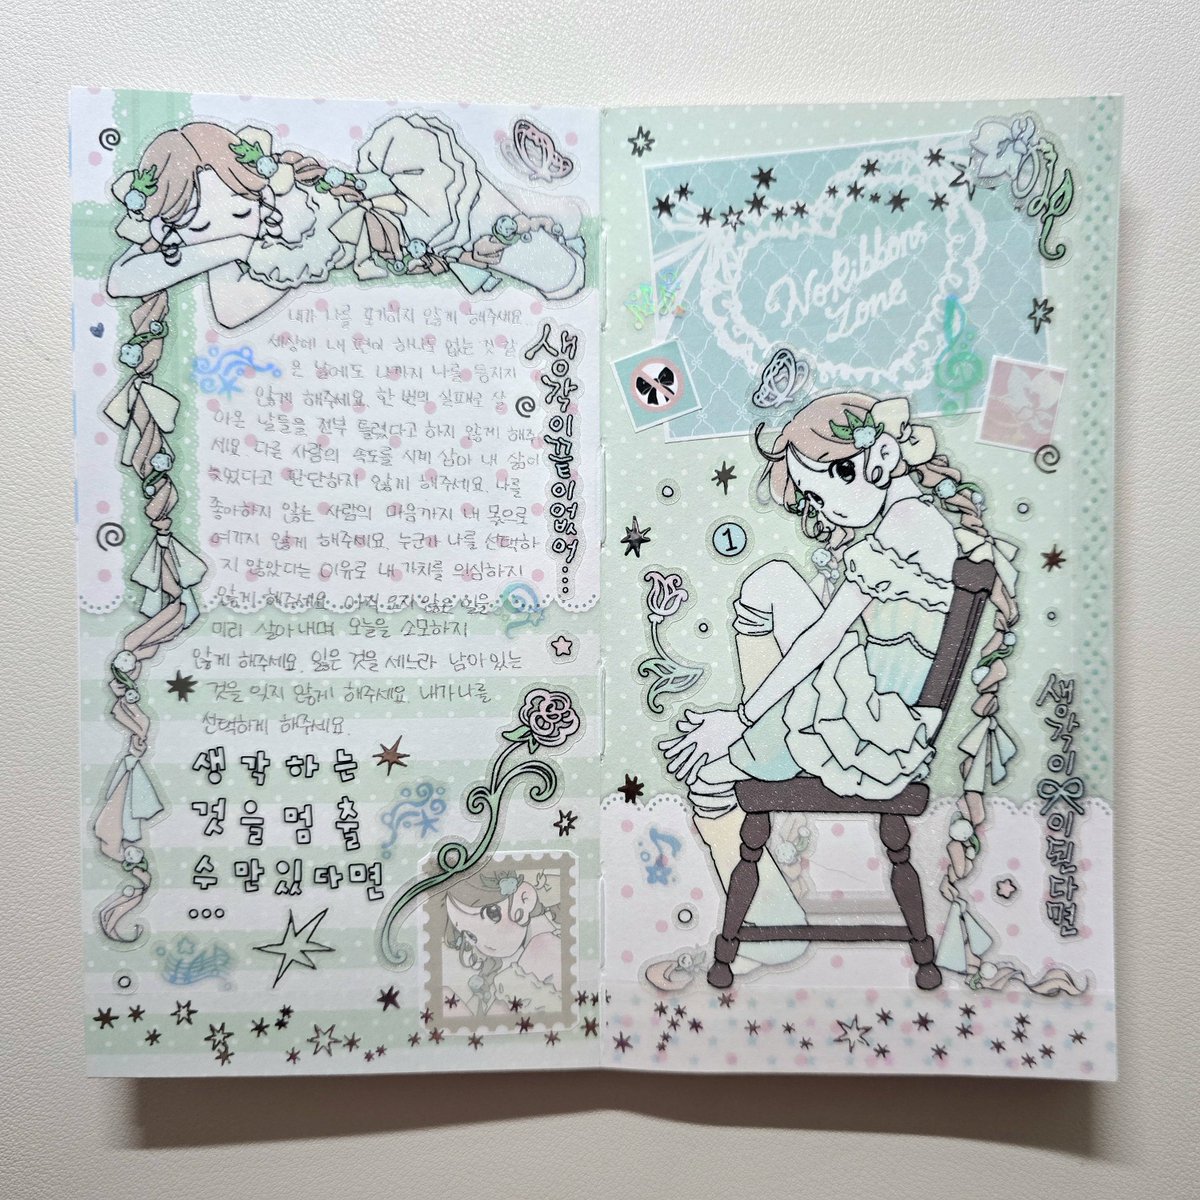 내가 나를 포기하지 않게 해주세요.
세상에 내 편이 하나도 없는 것 같
은 날에도 나까지 나를 등지지
않게 해주세요. 한 번의 실패로 살
아온 날들을 전부 틀렸다고 하지 않게 해주
세요. 다른 사람의 속도를 시계 삼아 내 삶이
늦었다고 판단하지 않게 해주세요. 나를
좋아하지 않는 사람의 마음까지 내 몫으로
여기지 않게 해주세요. 누군가 나를 선택하
지 않았다는 이유로 내 가치를 의심하지
않게 해주세요. 아직 오지 않은 일을
미리 살아내며 오늘을 소모하지
않게 해주세요. 잃은 것을 세느라 남아있는
것을 잊지 않게 해주세요. 내가 나를
선택하게 해주세요.
생각이끝이없어...
생각하는
것을멈출
수만있다면
...
No Ribbons
Zone
1
생각이이된다면